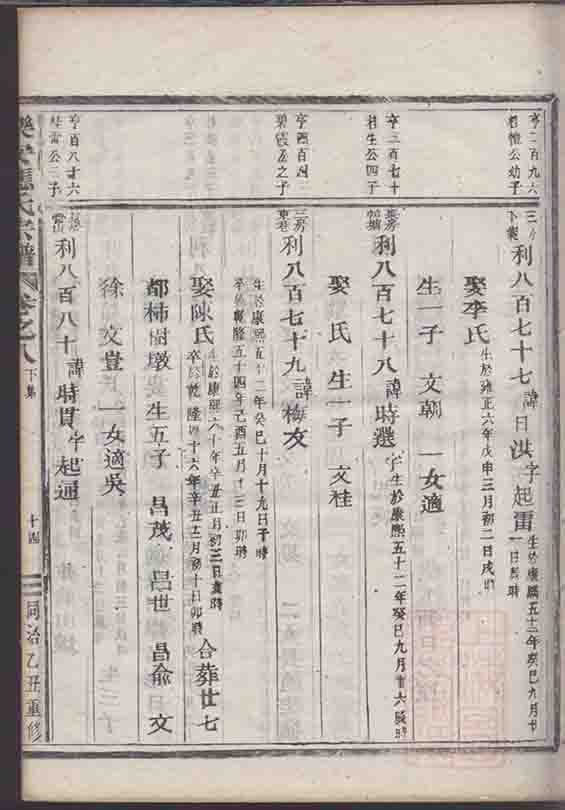 亨二百九六
君惟公幼子
三房
下巢
利八百七十七諱日洪字起雷生於康熙五十二年癸巳九月廿
一日辰時
娶李氏生於雍正六年戊申三月初二日戌時
生一子 文朝 一女適
亨三百七十
君生公四子
利八百七十八諱時選字生於康熙五十二年癸巳九月廿六辰時
娶 氏 生一子 文桂
亨四百四
君霞公之子
三房
東巷
利八百七十九諱梅友
生於康熙五十二年癸巳十月十九日子時
卒於乾隆五十四年己酉五月十三日卯時
娶陳氏生於康熙六十年辛丑正月初三日寅時
卒於乾隆四十六年辛丑十二月初十日卯時
合葬廿七
都柿樹墩 生五子 昌茂 昌世 昌俞 文
徐 文豈 一女適吳
亨百八十六
公三子
利八百八十諱時貫字起通
氏宗譜 卷之八 下集
十四
同治乙丑重修